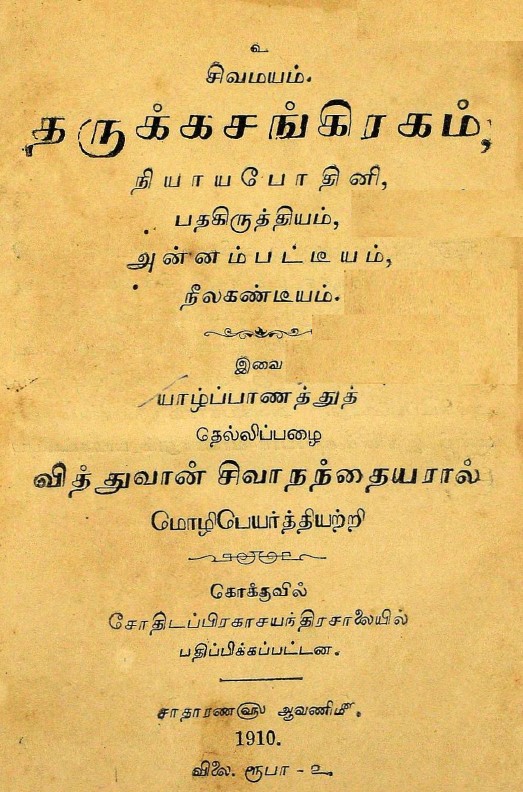 உ
சிவமயம்.
தருக்கசங்கிரகம்,
நியாயபோதினி,
பதகிருத்தியம்,
அன்னம்பட்டீயம்,
நீலகண்டீயம்.
இவை
யாழ்ப்பாணத்துத்
தெல்லிப்பழை
வித்துவான் சிவாநந்தையரால்
மொழிபெயர்த்தியற்றி
கொக்குவில்
சோதிடப்பிரகாசயந்திரசாலையில்
பதிப்பிக்கப்பட்டன.
சாதாரண௵ ஆவணி௴.
1910.
விலை. ரூபா - உ.